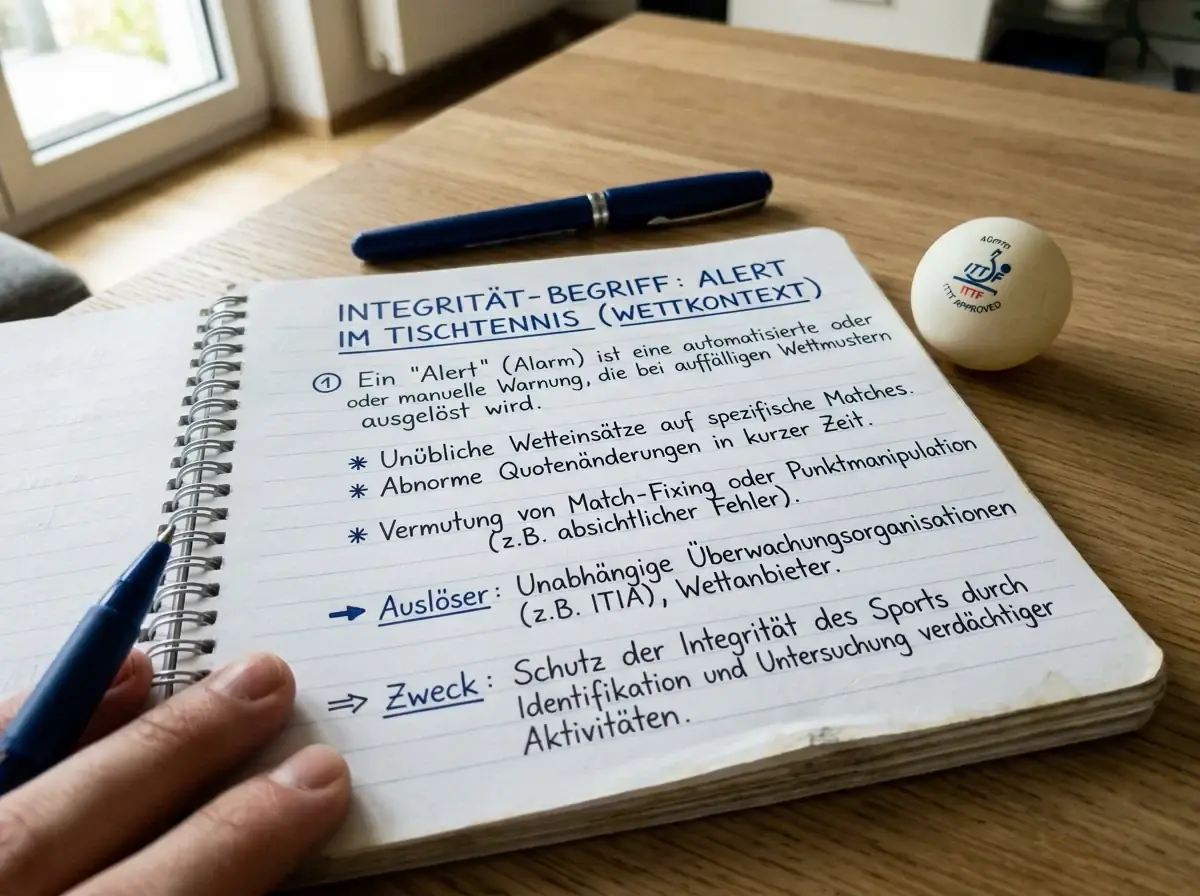 INTEGRITÄT-BEGRIFF: ALERT
IM TISCHTENNIS (WETTKONTEXT)
① Ein "Alert" (Alarm) ist eine automatisierte oder
oder manuelle Warnung, die bei auffälligen Wettmustern
ausgelöst wird.
* Unübliche Wetteinsätze auf spezifische Matches.
* Abnorme Quotenänderungen in kurzer Zeit.
* Vermutung von Match-Fixing oder Punktmanipulation
(z.B. absichtlicher Fehler).
→ Auslöser: Unabhängige Überwachungsorganisationen
(z.B. ITIA), Wettanbieter.
⇒ Zweck: Schutz der Integrität des Sports durch
Identifikation und Untersuchung verdächtiger
Aktivitäten.
ITTF
ITTF
APPROVED